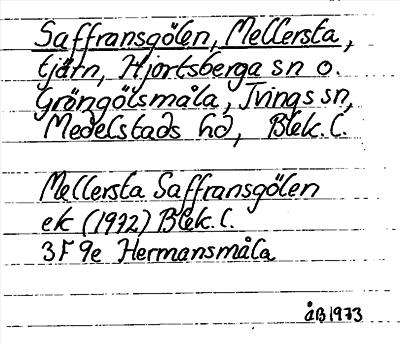 Saffransgölen, Mellersta,
tjärn, Hjortsberga sn o.
Gröngölsmåla, Tvings sn,
Medelstads hd, Blek. l.
Mellersta Saffransgölen
ek (1972) Blek. l.
3F 9e Hermansmåla
åB 1973